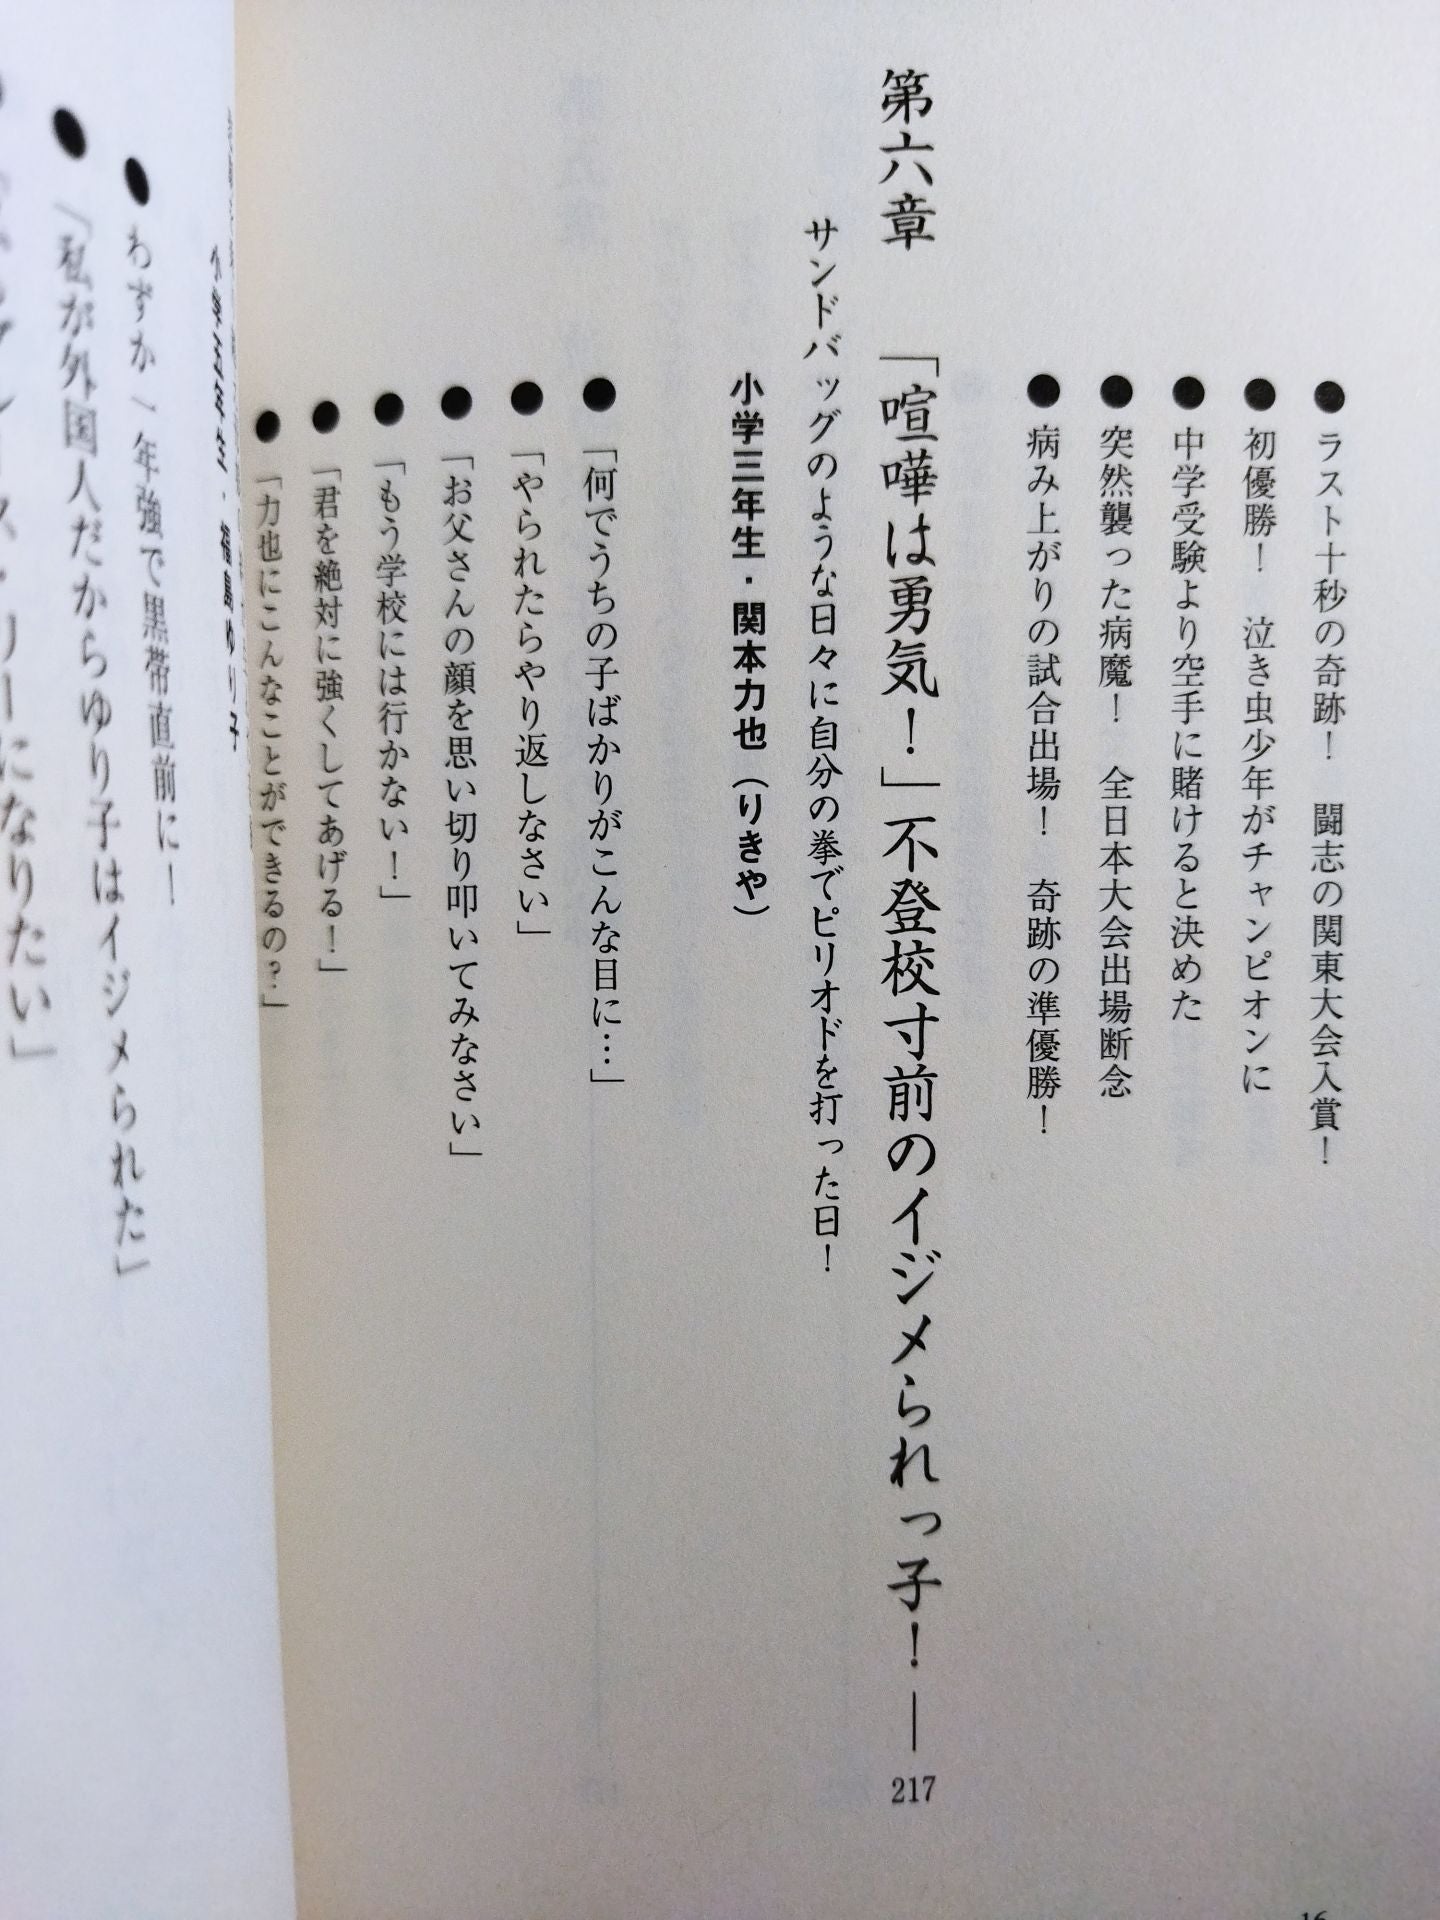 ● ラスト十秒の奇跡！ 闘志の関東大会入賞！
● 初優勝！ 泣き虫少年がチャンピオンに
● 中学受験より空手に賭けると決めた
● 突然襲った病魔！ 全日本大会出場断念
● 病み上がりの試合出場！ 奇跡の準優勝！
第六章 「喧嘩は勇気！」不登校寸前のイジメられっ子！ ― 217
サンドバッグのような日々に自分の拳でピリオドを打った日！
小学三年生・関本力也（りきや）
● 「何でうちの子ばかりがこんな目に…」
● 「やられたらやり返しなさい」
● 「お父さんの顔を思い切り叩いてみなさい」
● 「もう学校には行かない！」
● 「君を絶対に強くしてあげる！」
● 「力也にこんなことができるの？」
16
小学五年生・福島ゆり子
● わずか一年強で黒帯直前に！
● 「私が外国人だからゆり子はイジメられた」
になりたい」